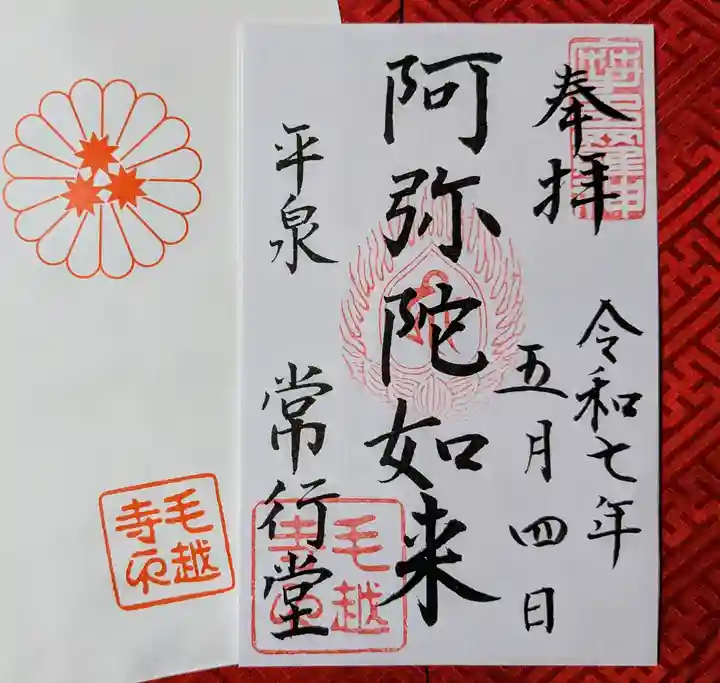 奉拝
令和七年
五月四日
阿弥陀如来
平泉 常行堂
毛越
寺印
毛越
寺印